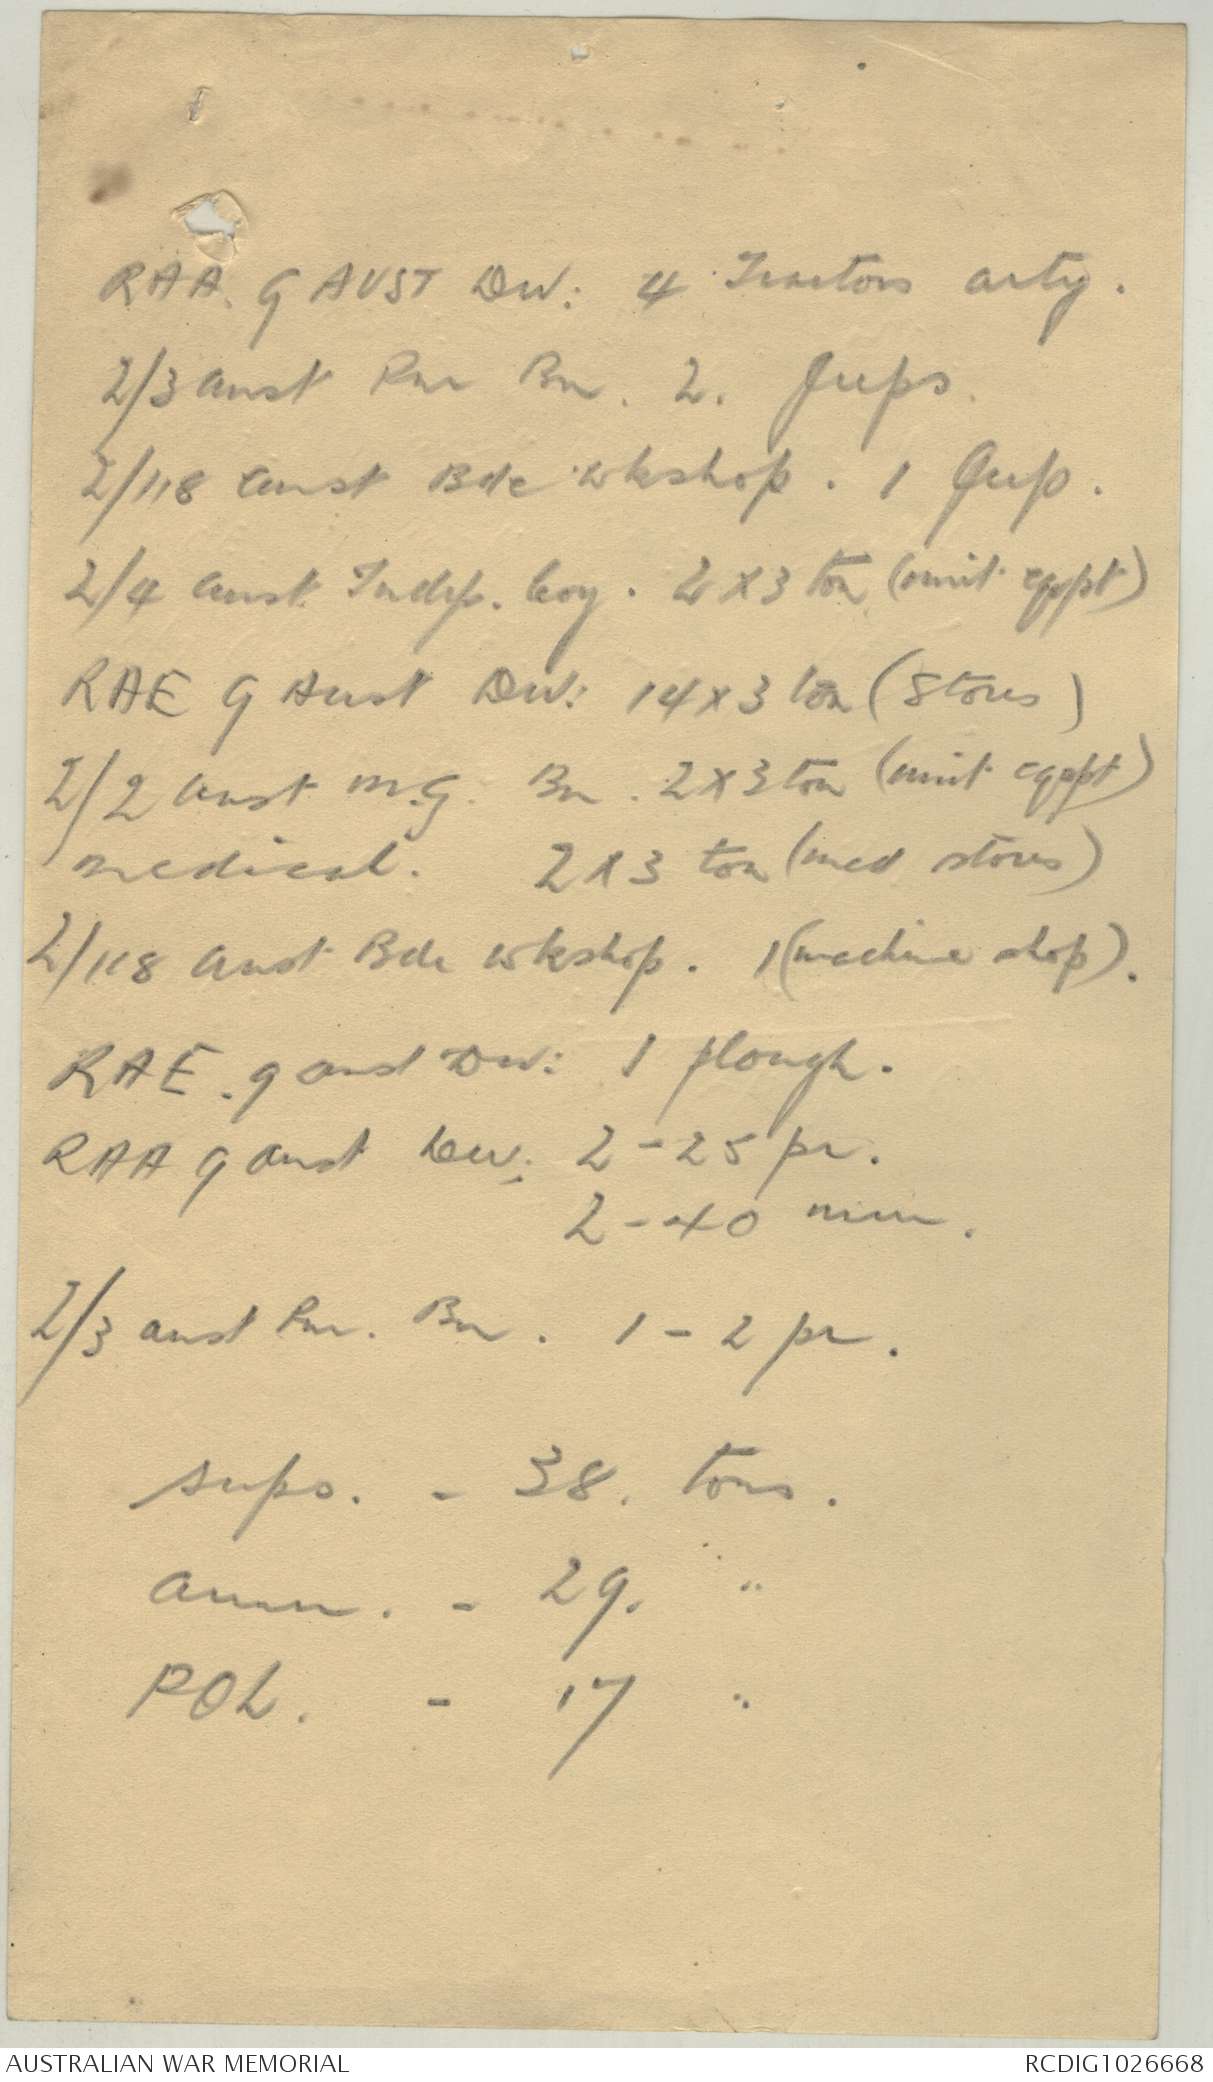 RAA. 9 AUST Div: 4 Tractors arty.
2/3 Aust Pnr Bn. 2. Jeeps.
2/118 Aust Bde Wkshop. 1 Jeep.
2/4 Aust. Indep. Coy. 2 x 3 ton (unit eqpt)
RAE 9 Aust Div: 14 x 3 ton (Stores)
2/2 Aust M.G. Bn. 2 x 3 ton (unit eqpt)
Medical. 2 x 3 ton (med stores)
2/118 Aust Bde Wkshop. 1 (machine shop).
RAE. 9 Aust Div: 1 plough.
RAA 9 Aust Div: 2 - 25 pr.
2 - 40 mm.
2/3 Aust Pnr. Bn. 1 - 2 pr.
Sups. - 38. tons.
Amm. - 29. "
POL. - 17 "
AUSTRALIAN WAR MEMORIAL
RCDIG1026668